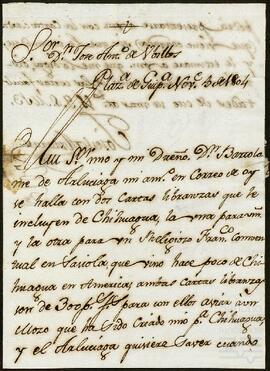 Sor. Dn. Jose Anto. de
Plaza. de Guipa. Novre. 3 de 1804
Muy Sr. mio y mi Dueño. Dn. Bartolo
me de Arluciaga mi amo. en Correo de oy
se halla con dos Cartas libranzas que le
incluyen de Chihuagua, la una para
y la otra para un Religioso Franco. Comven
tual en Sasiola, que vino hace poco de Chihu
agua en America; ambas Cartas libranzas
son de 300 para con ellos aviar a un
Mozo que ha sido Criado mio pa. Chihuagua,
y el Arluciaga quisiera Saver cuando